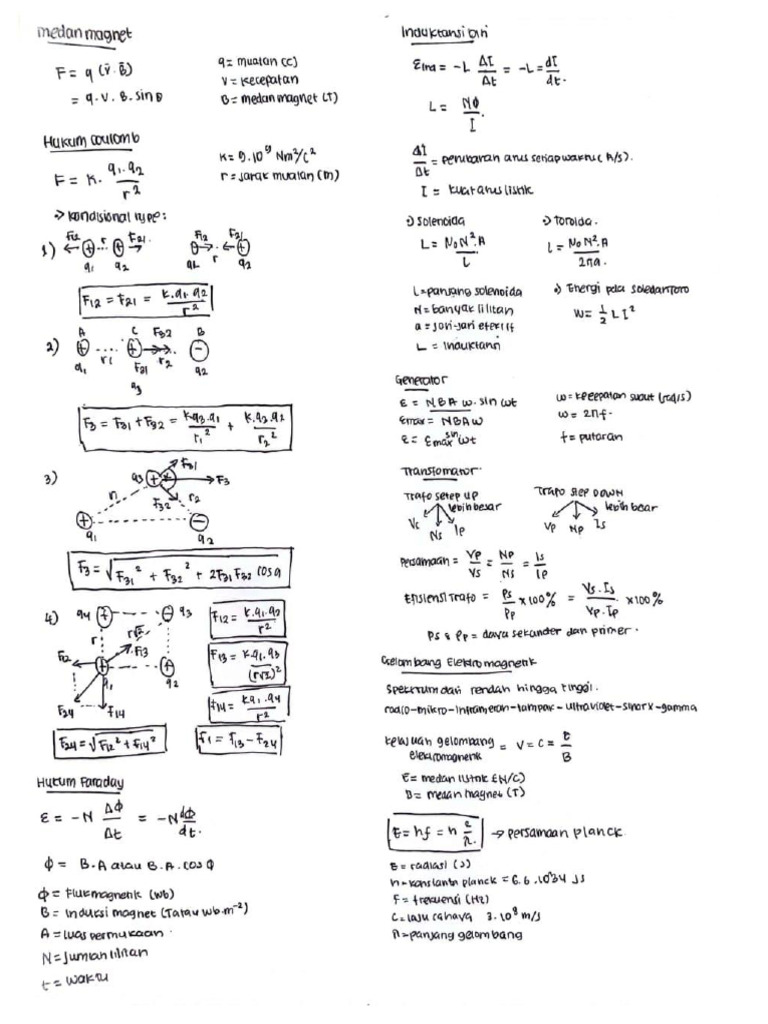 medan magnet
F = q (v̄. B̄)
= q. v. B. sin θ
q = muatan (C)
v = kecepatan
B = medan magnet (T)
Hukum coulomb
F = k. q1. q2 / r²
k = 9.10⁹ Nm²/c²
r = jarak muatan (m)
-> kondisional type:
1) F12 r F21
q1 q2
F12 r F21
q1 q2
F12 = F21 = k. q1. q2 / r²
2) A C F32 B
r1 F31 r2
q1 q3 q2
F3 = F31 + F32 = kq3.q1 / r1² + k.q3.q2 / r2²
3) q3 F31 F3
r1 F32 r2
q1 q2
F3 = √F31² + F32² + 2F31 F32 cos α
4) q4 q3
r r√2 F13
F12 q1 q2
F24 F14
F12 = k.q1.q2 / r²
F13 = k.q1.q3 / (r√2)²
F14 = kq1.q4 / r²
F24 = √F12² + F14²
F1 = F13 - F24
Hukum Faraday
ε = -N ΔΦ / Δt = -N dΦ / dt.
ϕ = B.A atau B.A. cos ϕ
ϕ = Fluk magnetik (Wb)
B = Induksi magnet (T atau Wb.m⁻²)
A = luas permukaan
N = Jumlah lilitan
t = waktu
Induktansi Diri
εind = -L ΔI / Δt = -L = dI / dt.
L = NΦ / I.
ΔI / Δt = perubahan arus setiap waktu (A/s).
I = kuat arus listrik
·) Solenoida
L = N0 N². A / l
·) Toroida.
L = N0 N². A / 2πa.
l = panjang solenoida
N = banyak lilitan
a = jari-jari efektif
L = induktansi
·) Energi pada soledantoro
W = 1/2 L I²
Generator
ε = NBA ω. sin ωt
εmax = NBAω
ε = εmax sin ωt
ω = kecepatan sudut (rad/s)
ω = 2πf.
f = putaran
Transfomator
Trafo setep UP
lebih besar
Vs Ns Ip
Trafo step DOWN
lebih besar
Vp Np Is
Persamaan = Vp / Vs = Np / Ns = Is / Ip
Efisiensi Trafo = Ps / Pp x 100% = Vs. Is / Vp. Ip x 100%
Ps & Pp = daya sekunder dan primer.
Gelombang Elektromagnetik
Spektrum dari rendah hingga tinggi.
radio-mikro-inframerah-tampak-ultraviolet-sinar x-gamma
kelajuan gelombang elektromagnetik = V = C = E / B
E = medan listrik (N/C)
B = medan magnet (T)
E = hf = h c / λ. -> persamaan planck.
E = radiasi (J)
h = konstanta planck = 6.6.10³⁴ Js
f = frekuensi (Hz)
C = laju cahaya 3.10⁸ m/s
λ = panjang gelombang